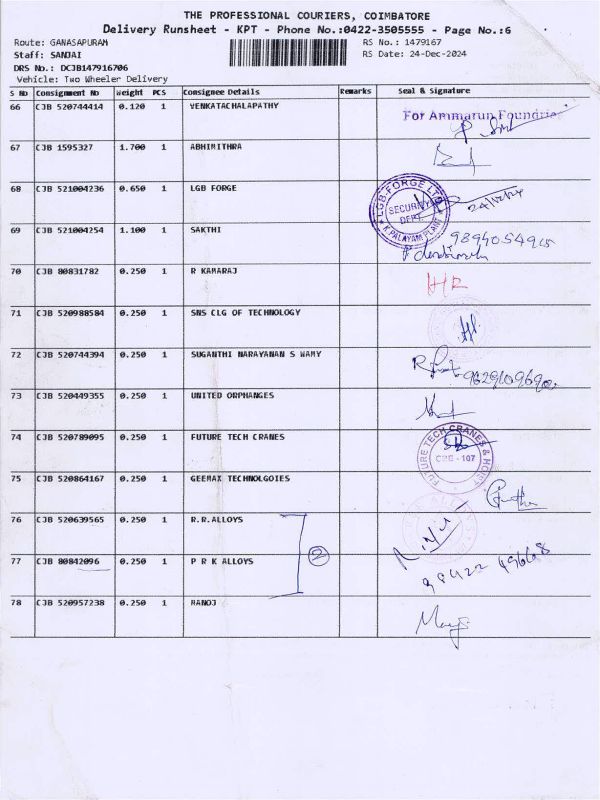 THE PROFESSIONAL COURIERS, COIMBATORE
Delivery Runsheet - KPT - Phone No.:0422-3505555 - Page No.:6
Route: GANASAPURAM
RS No.: 1479167
Staff: SANJAI
RS Date: 24-Dec-2024
DRS No.: DCJB147916706
Vehicle: Two Wheeler Delivery
S No Consignment No Weight PCS Consignee Details Remarks Seal & Signature
66 CJB 520744414 0.120 1 VENKATACHALAPATHY For Ammarun Foundries
67 CJB 1595327 1.700 1 ABHIMITHRA
68 CJB 521004236 0.650 1 LGB FORGE LGB FORGE LTD SECURITY DEPT. K.PALAYAM PLANT 24/12/24
69 CJB 521004254 1.100 1 SAKTHI
70 CJB 80831782 0.250 1 R KAMARAJ HR
71 CJB 520988584 0.250 1 SNS CLG OF TECHNOLOGY
72 CJB 520744394 0.250 1 SUGANTHI NARAYANAN S WAMY
73 CJB 520449355 0.250 1 UNITED ORPHANGES
74 CJB 520789095 0.250 1 FUTURE TECH CRANES FUTURE TECH CRANES & HOIST CBE - 107
75 CJB 520864167 0.250 1 GEEMAX TECHNOLGOIES
76 CJB 520639565 0.250 1 R.R.ALLOYS
77 CJB 80842096 0.250 1 P R K ALLOYS 2 98422 49668
78 CJB 520957238 0.250 1 MANOJ